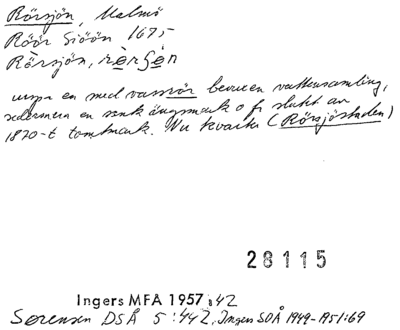 Rörsjön, Malmö
Röör Siöön 1675
Rörsjön,
urspr en med vassrör bevuxen vattensamling,
sedermera en sank ängsmark o fr slutet av
1870-t tomtmark. Nu kvarter (Rörsjöstaden)
28115
Ingers MFA 1957 s 42
Sørensen DSÅ 5:442, Ingers SOÅ 1949-1951:69